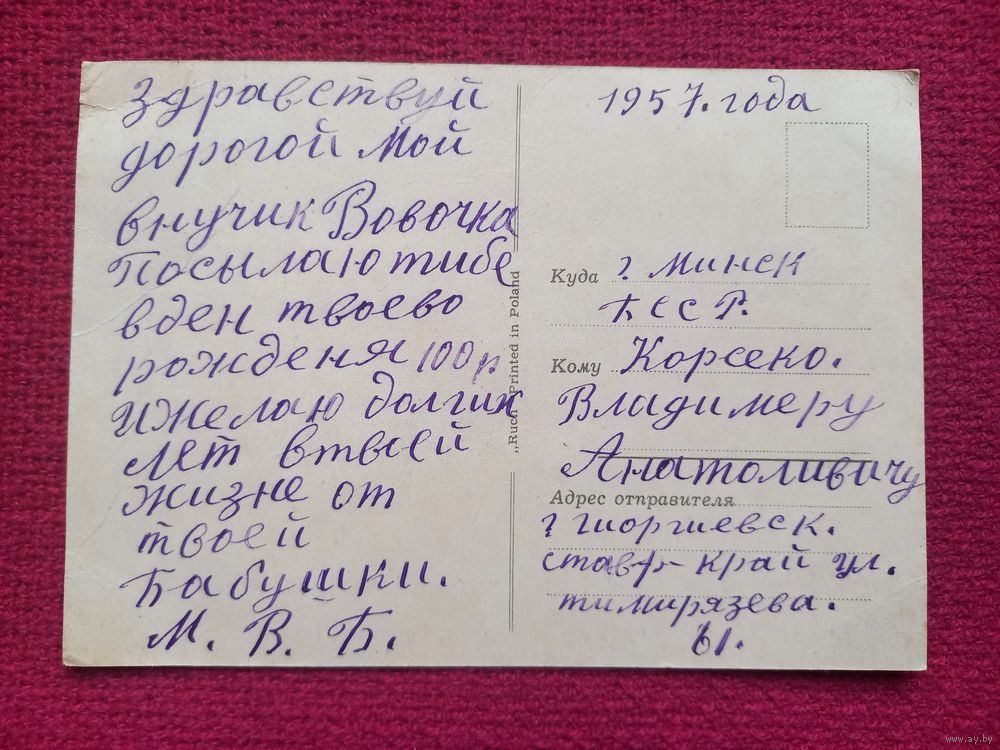 Здравствуй
дорогой Мой
внучик Вовочка
Посылаю тибе
вден твоево
рожденя 100р
ИЖелаю долгих
лет втвей
жизне от
твоей
Бабушки.
М. В. Б.
„Ruch" Printed in Poland
1957. года
Куда г. Минск
БССР.
Кому Корсеко.
Владимеру
Анатоливичу
Адрес отправителя
г гиоргиевск.
став край ул.
тимирязева.
61.
www.ay.by